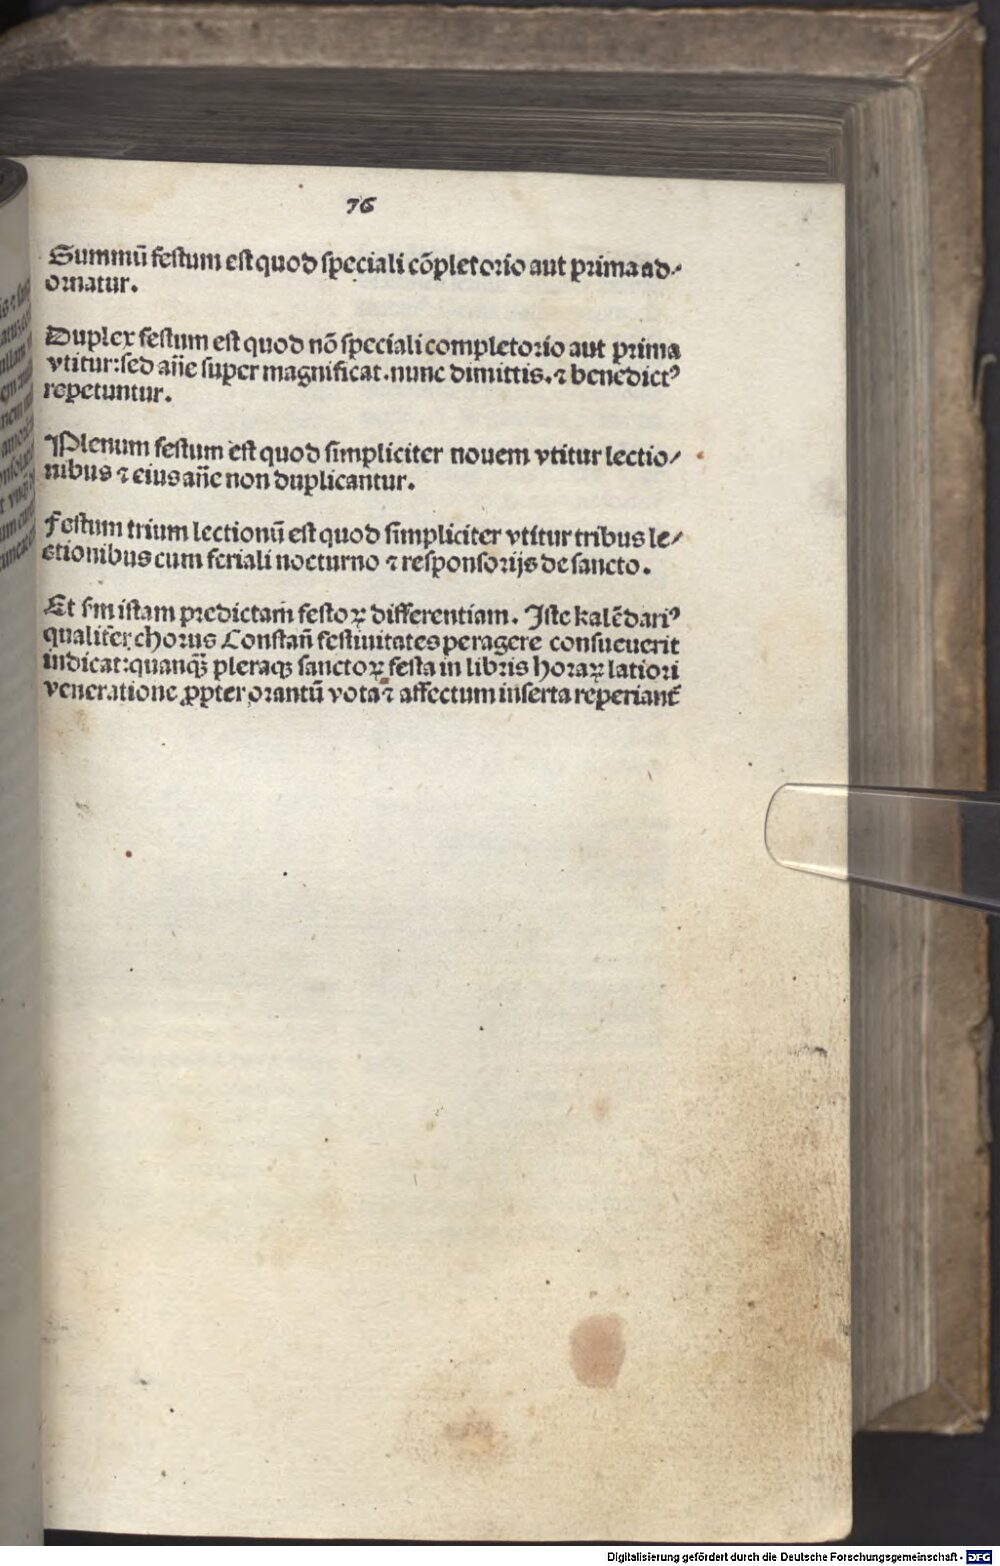 76
Summū festum est quod speciali cōpletorio aut prima ad⸗
ornatur.
Duplex festum est quod nō speciali completorio aut prima
vtitur: sed añe super magnificat. nunc dimittis. ⁊ benedictꝰ
repetuntur.
Plenum festum est quod simpliciter nouem vtitur lectio⸗
nibus ⁊ eius añe non duplicantur.
Festum trium lectionū est quod simpliciter vtitur tribus le⸗
ctionibus cum feriali nocturno ⁊ responsorijs de sancto.
Et sm istam predictam festoꝝ differentiam. Iste kalēdariꝰ
qualiter chorus Constan̄ festiuitates peragere consueuerit
indicat: quanqꝫ pleraqꝫ sanctoꝝ festa in libris horaꝝ latiori
veneratione ꝓpter orantū vota ⁊ affectum inserta reperiant̄
Digitalisierung gefördert durch die Deutsche Forschungsgemeinschaft - DFG